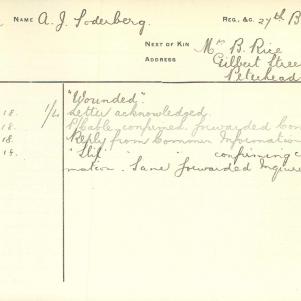 NAME A. J. Soderberg. REG. &C. 27th B
NEXT OF KIN Mrs B. Rice
ADDRESS Gilbert Stree
Peterhead
"Wounded".
18. 1/4 Letter acknowledged.
18. confirmed, forwarded Con
18. Reply from Commr Information
18. " " confirming c
mation. Same forwarded Inquire